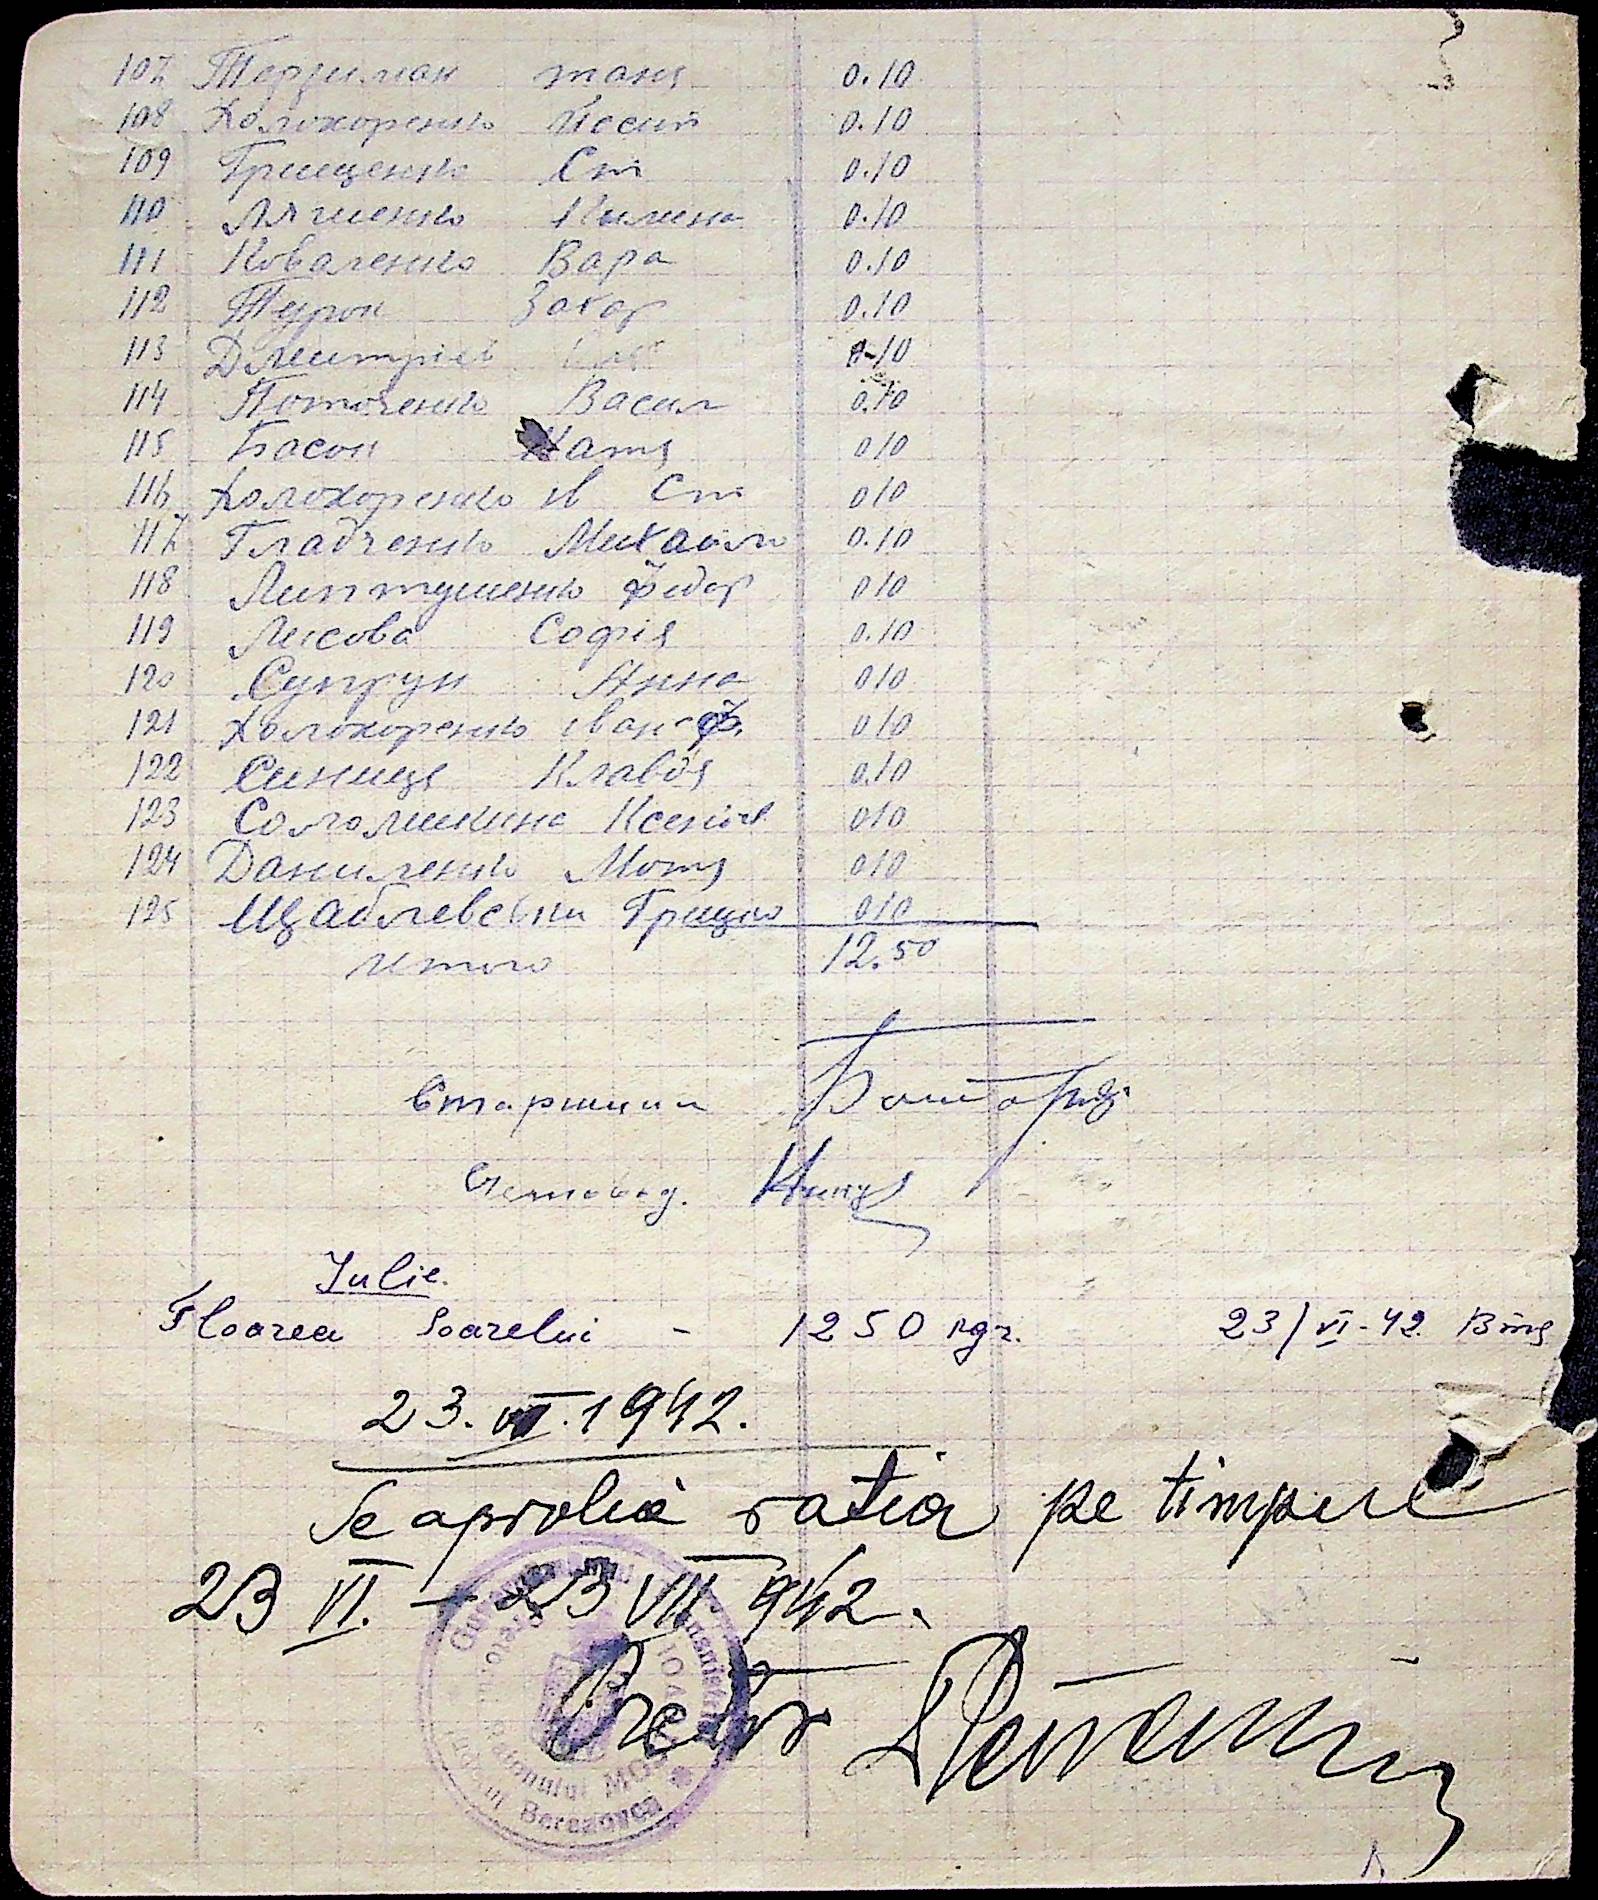 107 Терзиман таня 0.10
108 Холохоренко Йосип 0.10
109 Грищенко Ст 0.10
110 Ляшенко Килина 0.10
111 Коваленко Вара 0.10
112 Турок Захар 0.10
113 Дмитрієв 0-10
114 Поточенко Васил 0.10
115 Басок Катя 010
116 Холохоренко ів Ст 010
117 Гладченко Михайло 0.10
118 Липтушенко Федор 010
119 Лисова Софія 0.10
120 Супрун Анна 010
121 Холохоренко Іван Ф. 010
122 Синиця Клавдя 0.10
123 Соломикина Ксенія 010
124 Даниленко Мотя 010
125 Щаблевски Грицко 010
Итого 12.50
Старшина
Счетовод.
Iulie.
Floarea Soarelui - 1250 kgr. 23/VI-42.
23. VI. 1942.
Se aprobă rația pe timpul
23 VI. - 23 VII 942.
Pretor
Guvernământul Transnistriei
Pretorul Raionului
Județul Berezovca